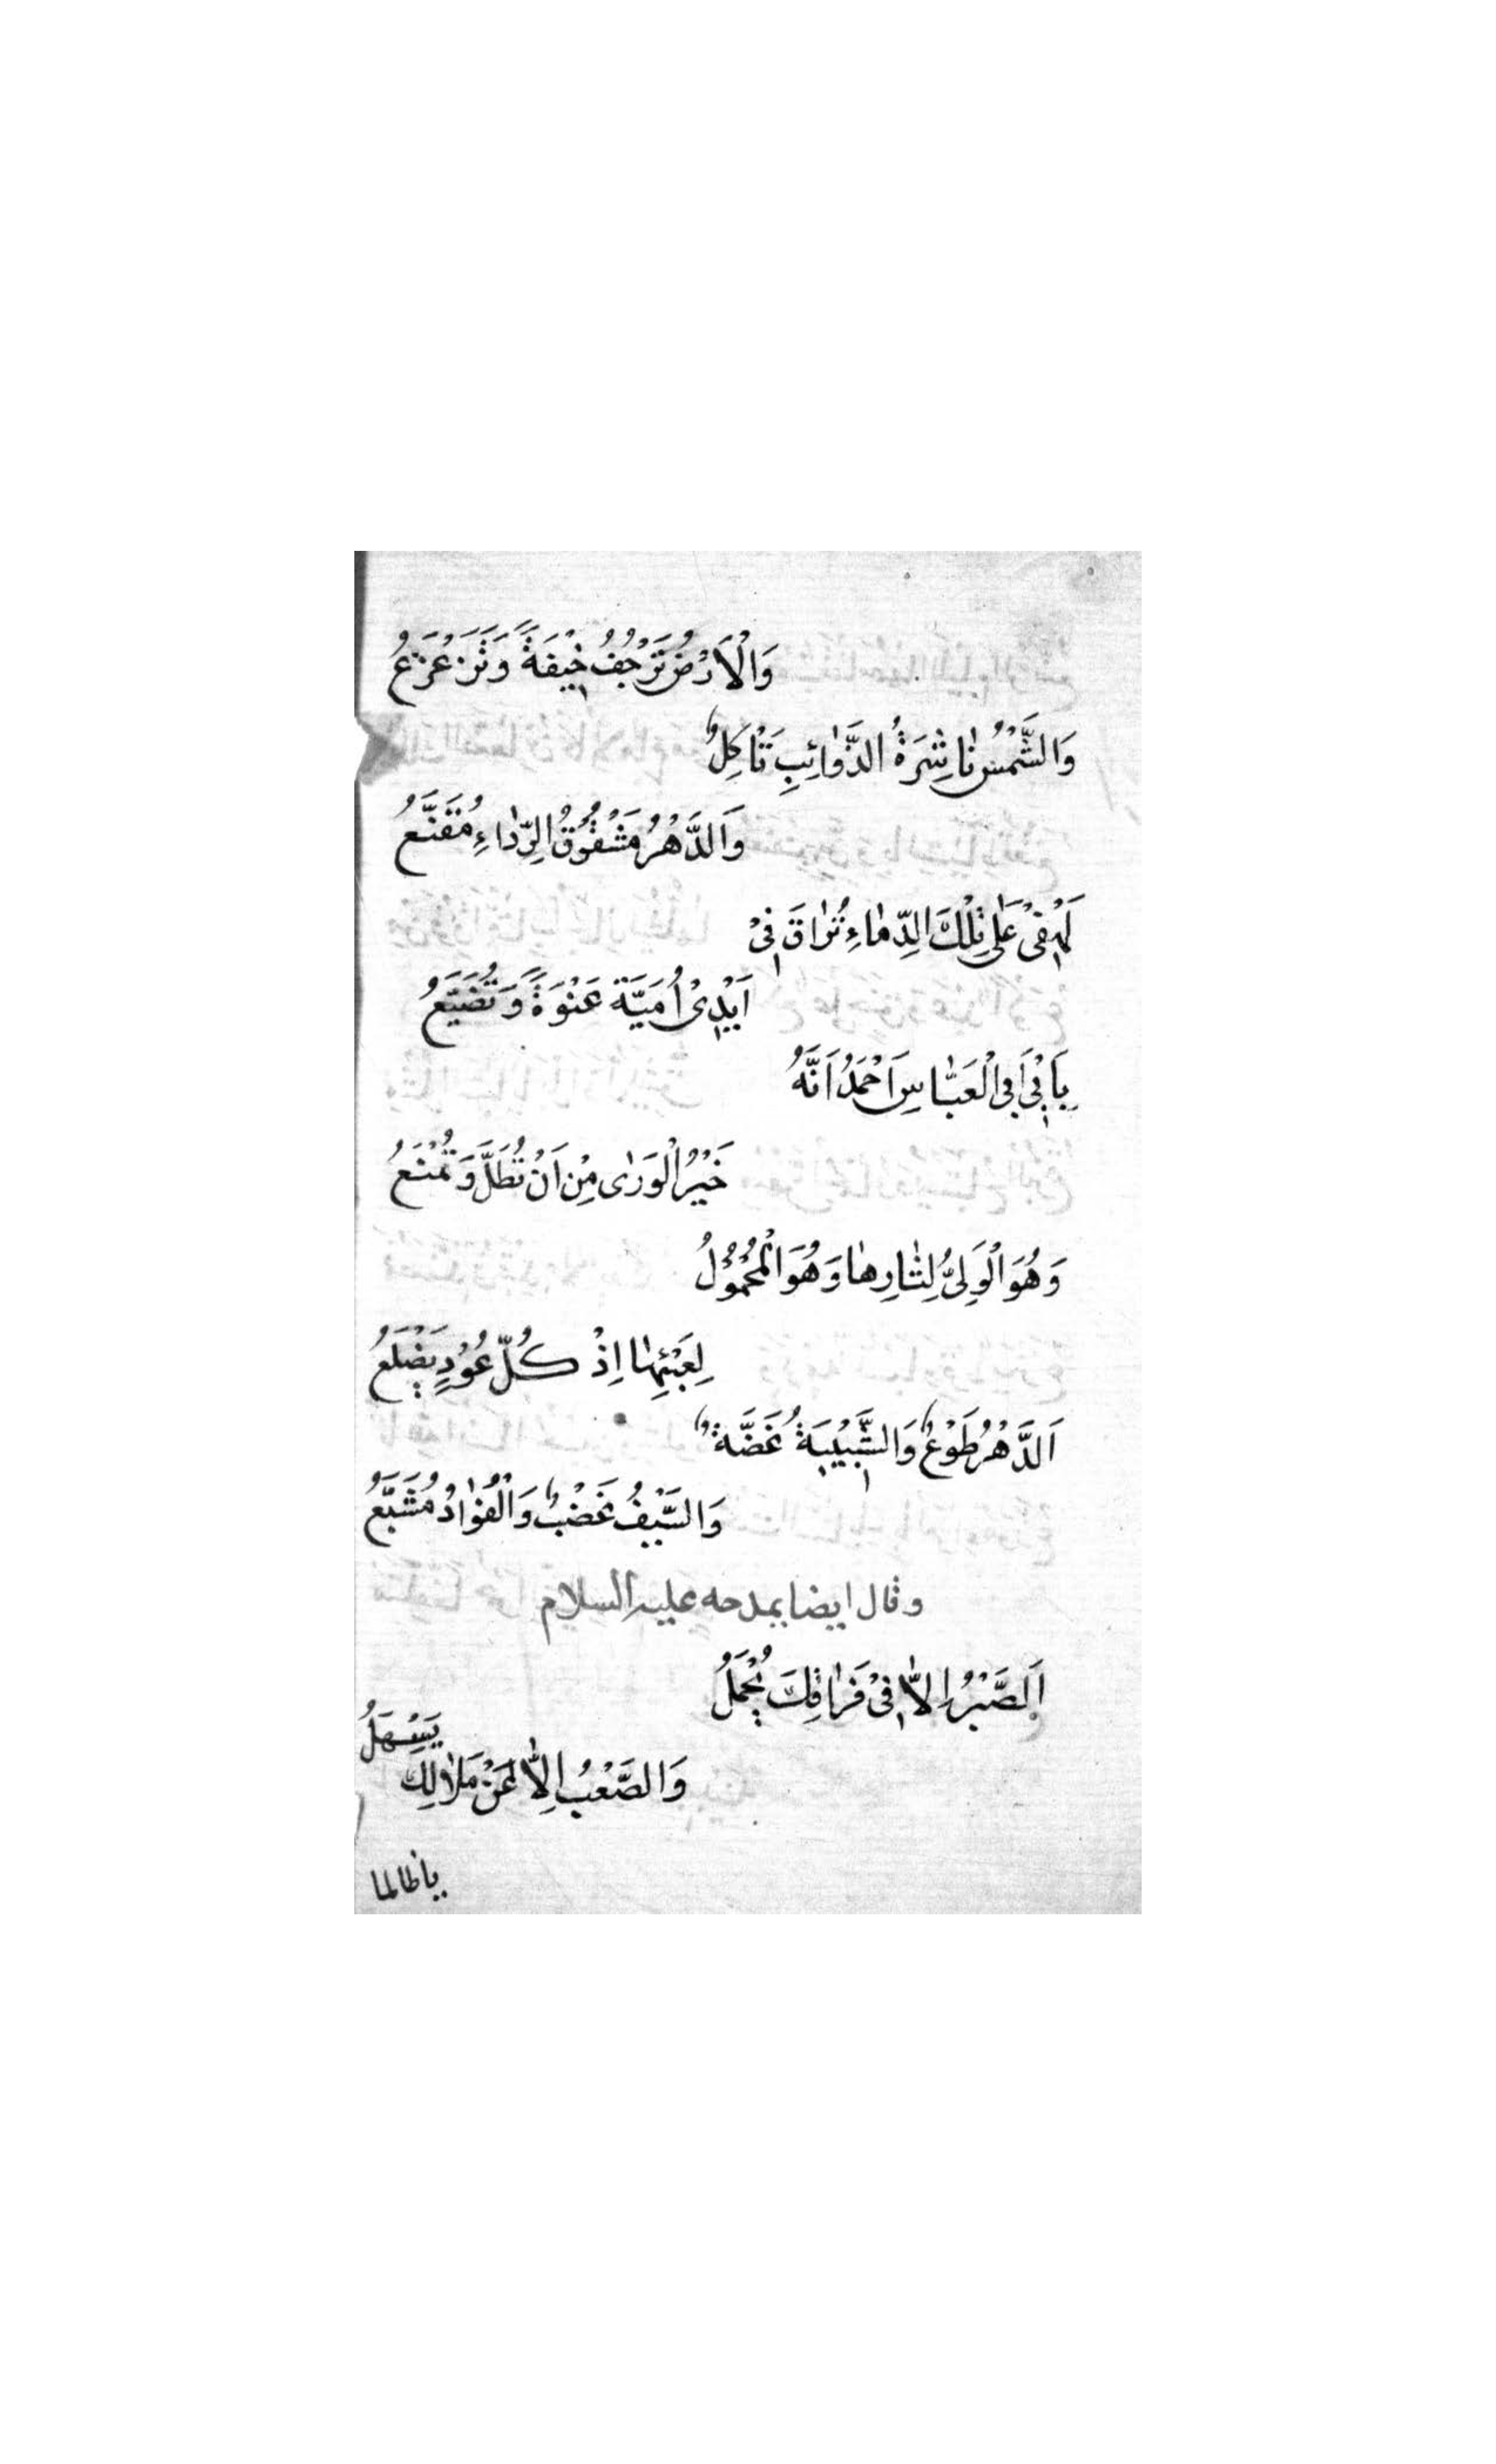 وَالْاَرْضُ تَرْجُفُ خِيْفَةً وَتَزَعْزَعُ
وَالشَّمْسُ نَاشِرَةُ الذَّوَائِبِ ثَاكِلٌ
وَالدَّهْرُ مَشْقُوْقُ الرِّدَاءِ مُقَنَّعُ
لَهْفِىْ عَلٰى تِلْكَ الدِّمَاءِ تُرَاقَ فِىْ
اَيْدِىْ اُمَيَّةَ عَنْوَةً وَتُضَيَّعُ
بِاَبِىْ اَبِى الْعَبَّاسِ اَحْمَدُ اَنَّهُ
خَيْرُ الْوَرٰى مِنْ اَنْ تُطَلَّ وَتُمْنَعُ
وَهُوَ الْوَلِىُّ لِثَارِهَا وَهُوَ الْمُحْمُوْلُ
لِعَبْئِهَا اِذْ كُلُّ عُوْدٍ يَضْلَعُ
اَلدَّهْرُ طَوْعٌ وَالشَّبِيْبَةُ غَضَّةٌ
وَالسَّيْفُ عَضْبٌ وَالْفُؤَادُ مُشَيَّعُ
وقال ايضا يمدحه عليه السلام
اَلصَّبْرُ اِلَّا فِىْ فَرَاقِكَ يُجْمَلُ
وَالصَّعْبُ اِلَّا عَنْ مَلَالِكَ يَسْهَلُ
ياظالما